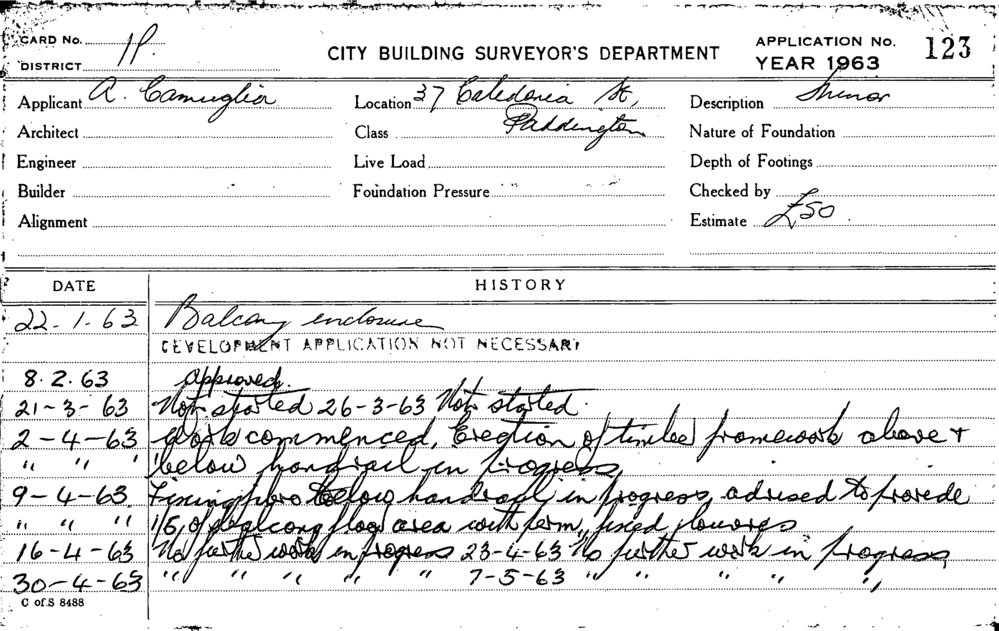 CARD No. 1P. CITY BUILDING SURVEYOR'S DEPARTMENT APPLICATION No. 123
DISTRICT YEAR 1963
Applicant A. Camuglia Location 37 Caledonia St, Description Minor
Architect Class Paddington Nature of Foundation
Engineer Live Load Depth of Footings
Builder Foundation Pressure Checked by
Alignment Estimate £50
DATE HISTORY
22.1.63 Balcony enclosure
DEVELOPMENT APPLICATION NOT NECESSARY
8.2.63 approved.
21-3-63 Not started 26-3-63 Not started.
2-4-63 Work commenced, Erection of timber framework above +
" " " below handrail in progress,
9-4-63 Fixing fibro below handrail in progress, advised to provide
" " " 1/6 of balcony floor area with perm, fixed louvres
16-4-63 No further work in progress 23-4-63 No further work in progress,
30-4-63 " " " " " 7-5-63 " " " " "
C of S 8488